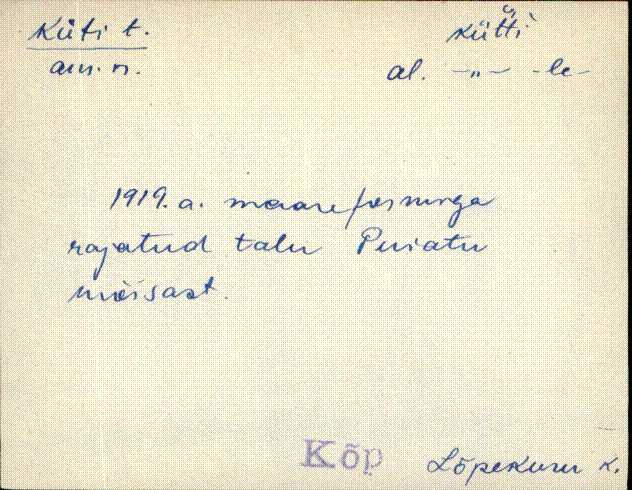 Küti t.
am. n.
kütti
al. —„— -le-
1919. a. maareformiga
rajatud talu Puiatu
mõisast.
Kõp
Lõpekunu k.